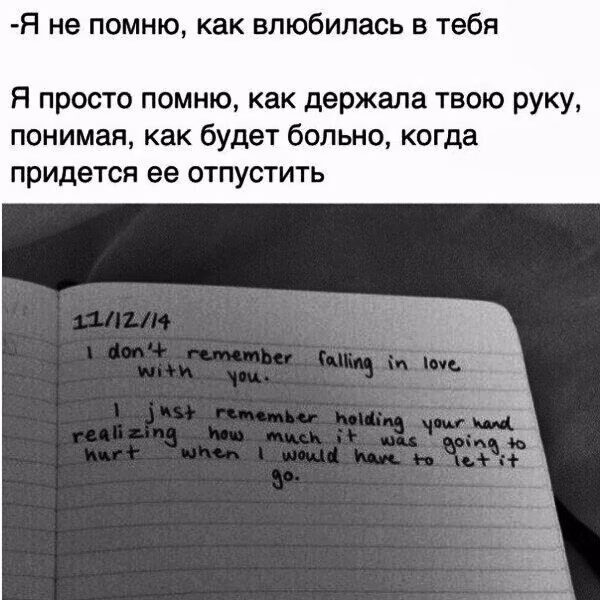 -Я не помню, как влюбилась в тебя
Я просто помню, как держала твою руку,
понимая, как будет больно, когда
придется ее отпустить
11/12/14
I don't remember falling in love
with you.
I just remember holding your hand
realizing how much it was going to
hurt when I would have to let it
go.